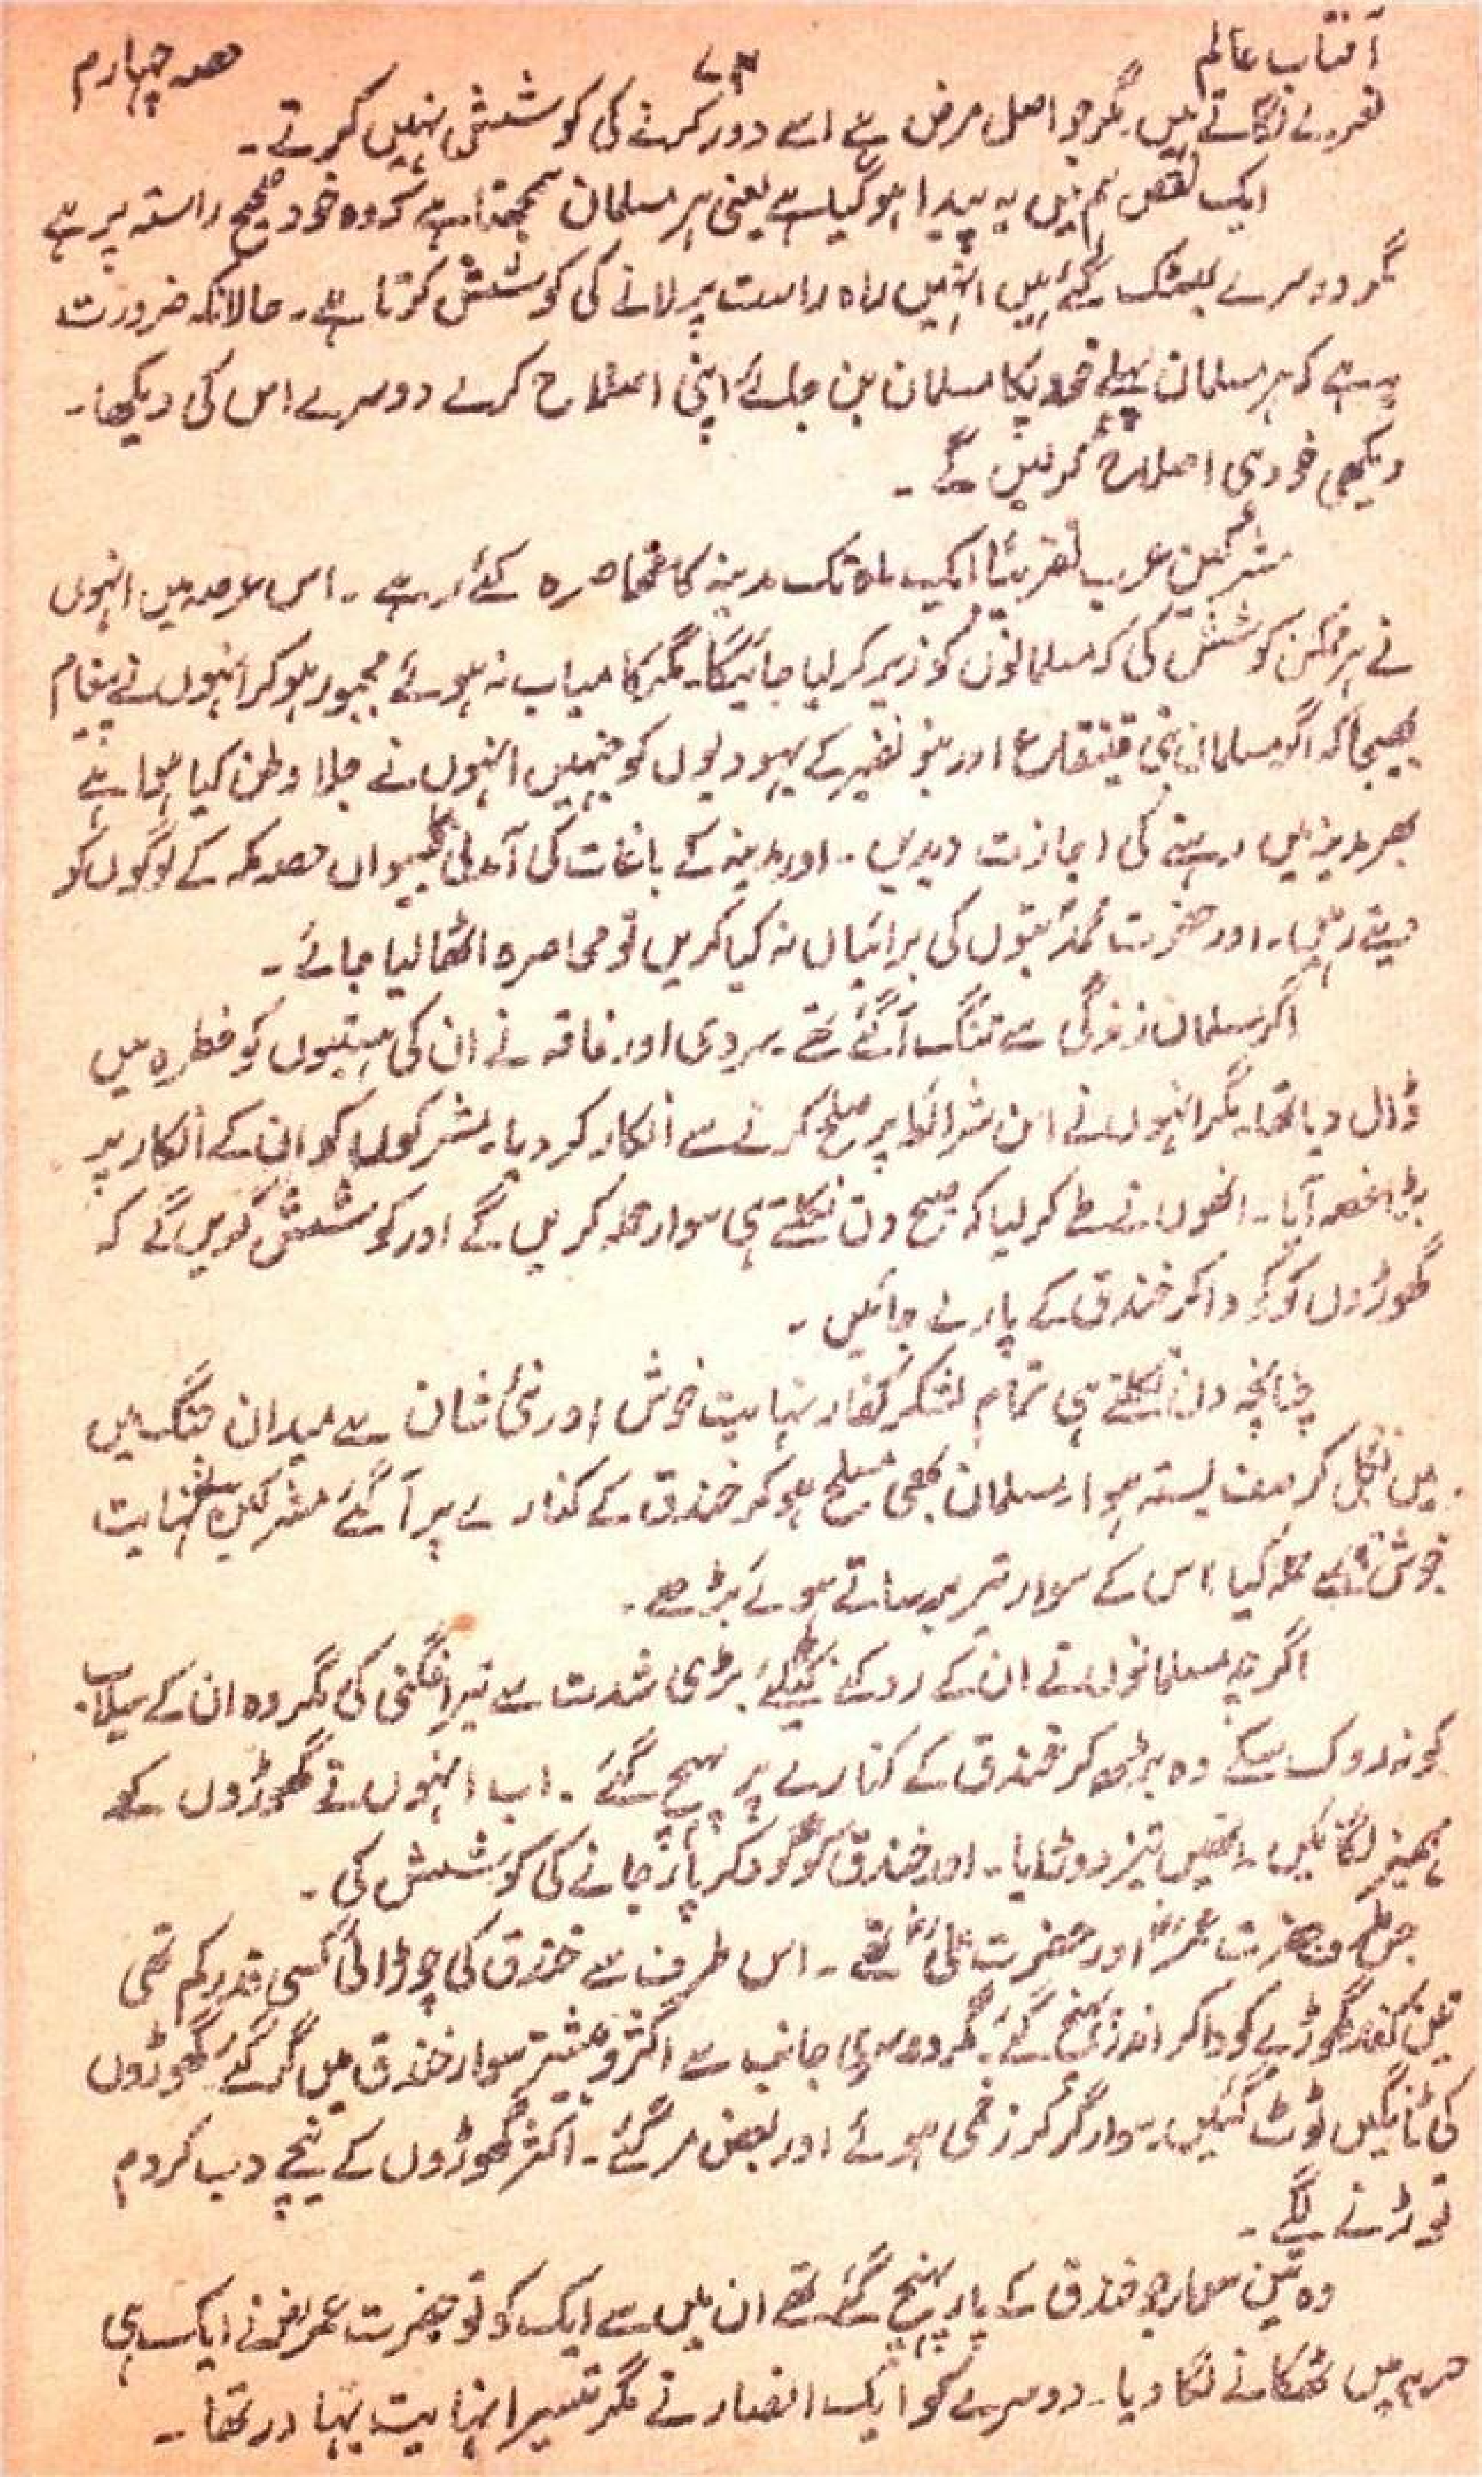 آفتاب عالم ۷۴ حصہ چہارم
نعرے لگاتے ہیں۔ مگر جو اصل مرض ہے اسے دور کرنے کی کوشش نہیں کرتے۔
ایک نقص ہم میں یہ پیدا ہو گیا ہے یعنی ہر مسلمان سمجھتا ہے کہ وہ خود صحیح راستہ پر ہے
مگر دوسرے بھٹک گئے ہیں انہیں راہ راست پر لانے کی کوشش کرتا ہے۔ حالانکہ ضرورت
ہے کہ ہر مسلمان پہلے خود پکا مسلمان بن جائے اپنی اصلاح کرے دوسرے اس کی دیکھا۔
دیکھی خود ہی اصلاح کر لیں گے۔
مشرکین عرب تقریباً ایک ماہ تک مدینہ کا محاصرہ کئے رہے۔ اس عرصہ میں انہوں
نے ہر ممکن کوشش کی کہ مسلمانوں کو زیر کر لیا جائیگا۔ مگر کامیاب نہ ہوئے مجبور ہو کر انہوں نے پیغام
بھیجا کہ اگر مسلمان بنی قینقاع اور بنو نضیر کے یہودیوں کو جنہیں انہوں نے جلا وطن کیا ہوا ہے
پھر مدینہ میں رہنے کی اجازت دیدیں۔ اور مدینہ کے باغات کی آمدنی کا حصہ مکہ کے لوگوں کو
دیتے رہیں۔ اور حضرت محمدؐ بتوں کی برائیاں نہ کیا کریں تو محاصرہ اٹھا لیا جائے۔
اگر مسلمان زندگی سے تنگ آ گئے تھے۔ سردی اور فاقہ نے ان کی ہستیوں کو خطرہ میں
ڈال دیا تھا۔ مگر انہوں نے ان شرائط پر صلح کرنے سے انکار کر دیا۔ مشرکوں کو ان کے انکار پر
بڑا غصہ آیا۔ انھوں نے طے کر لیا کہ صبح دن نکلتے ہی سوار حملہ کریں گے اور کوشش کریں گے کہ
گھوڑوں کو کودا کر خندق کے پار لے جائیں۔
چنانچہ دن نکلتے ہی تمام لشکر کفار نہایت خوش اور نئی شان سے میدان جنگ میں
میں نکل کر صف بستہ ہوا۔ مسلمان بھی مسلح ہو کر خندق کے کنارے پر آ گئے مشرکین نے نہایت
جوش سے حملہ کیا۔ اس کے سوار تیر برساتے ہوئے بڑھے۔
اگرچہ مسلمانوں نے ان کے روکنے کیلئے بڑی شدت سے تیر افگنی کی مگر وہ ان کے سیلاب
کو نہ روک سکے وہ بڑھ کر خندق کے کنارے پر پہنچ گئے۔ اب انہوں نے گھوڑوں کے
مہمیز لگائیں۔ انھیں تیز دوڑایا۔ اور خندق کو کود کر پار جانے کی کوشش کی۔
جس طرف حضرت عمرؓ اور حضرت علیؓ تھے۔ اس طرف سے خندق کی چوڑائی کسی قدر کم تھی
تین کفار گھوڑے کودا کر اندر پہنچ گئے۔ مگر دوسری جانب سے اکثر و بیشتر سوار خندق میں گر گئے گھوڑوں
کی ٹانگیں ٹوٹ گئیں۔ سوار گر کر زخمی ہوئے اور بعض مر گئے۔ اکثر گھوڑوں کے نیچے دب کر دم
توڑنے لگے۔
وہ تین سوار جو خندق کے پار پہنچ گئے تھے ان میں سے ایک کو تو حضرت عمرؓ نے ایک ہی
میں ٹھکانے لگا دیا۔ دوسرے کو ایک انصار نے مگر تیسرا نہایت بہادر تھا۔